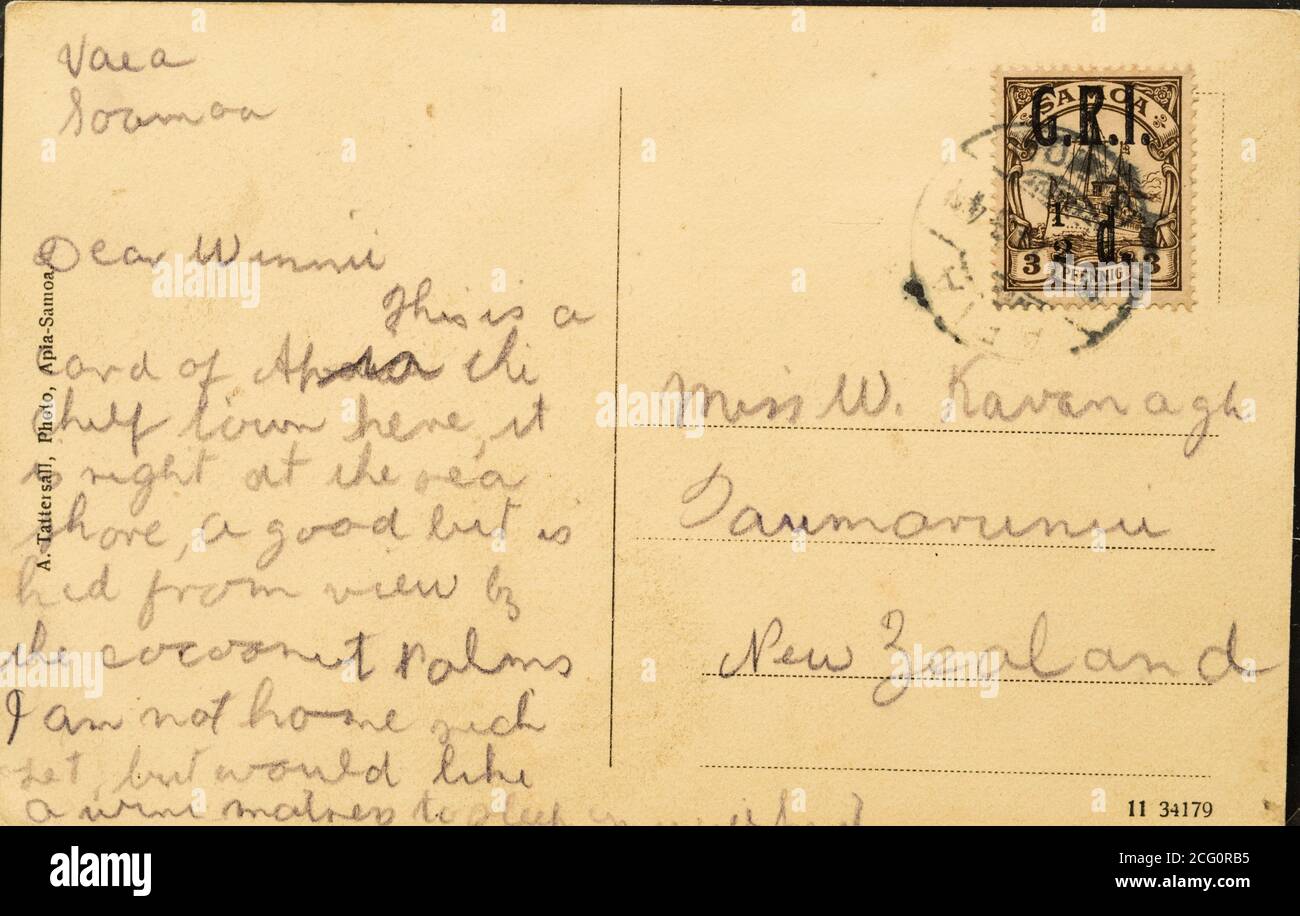 Vaea
Soamoa
Dear Winnie
This is a
card of Apia the
chief town here, it
is right at the sea
shore, a good but is
hid from view by
the cocoanut palms
I am not home sick
yet, but would like
a wire matress to sleep on
A. Tattersall, Photo, Apia-Samoa.
SAMOA
G.R.I.
1
2 d.
3 PFENNIG 3
Miss W. Kavanagh
Taumarunui
New Zealand
11 34179
alamy
Image ID: 2CG0RB5
www.alamy.com